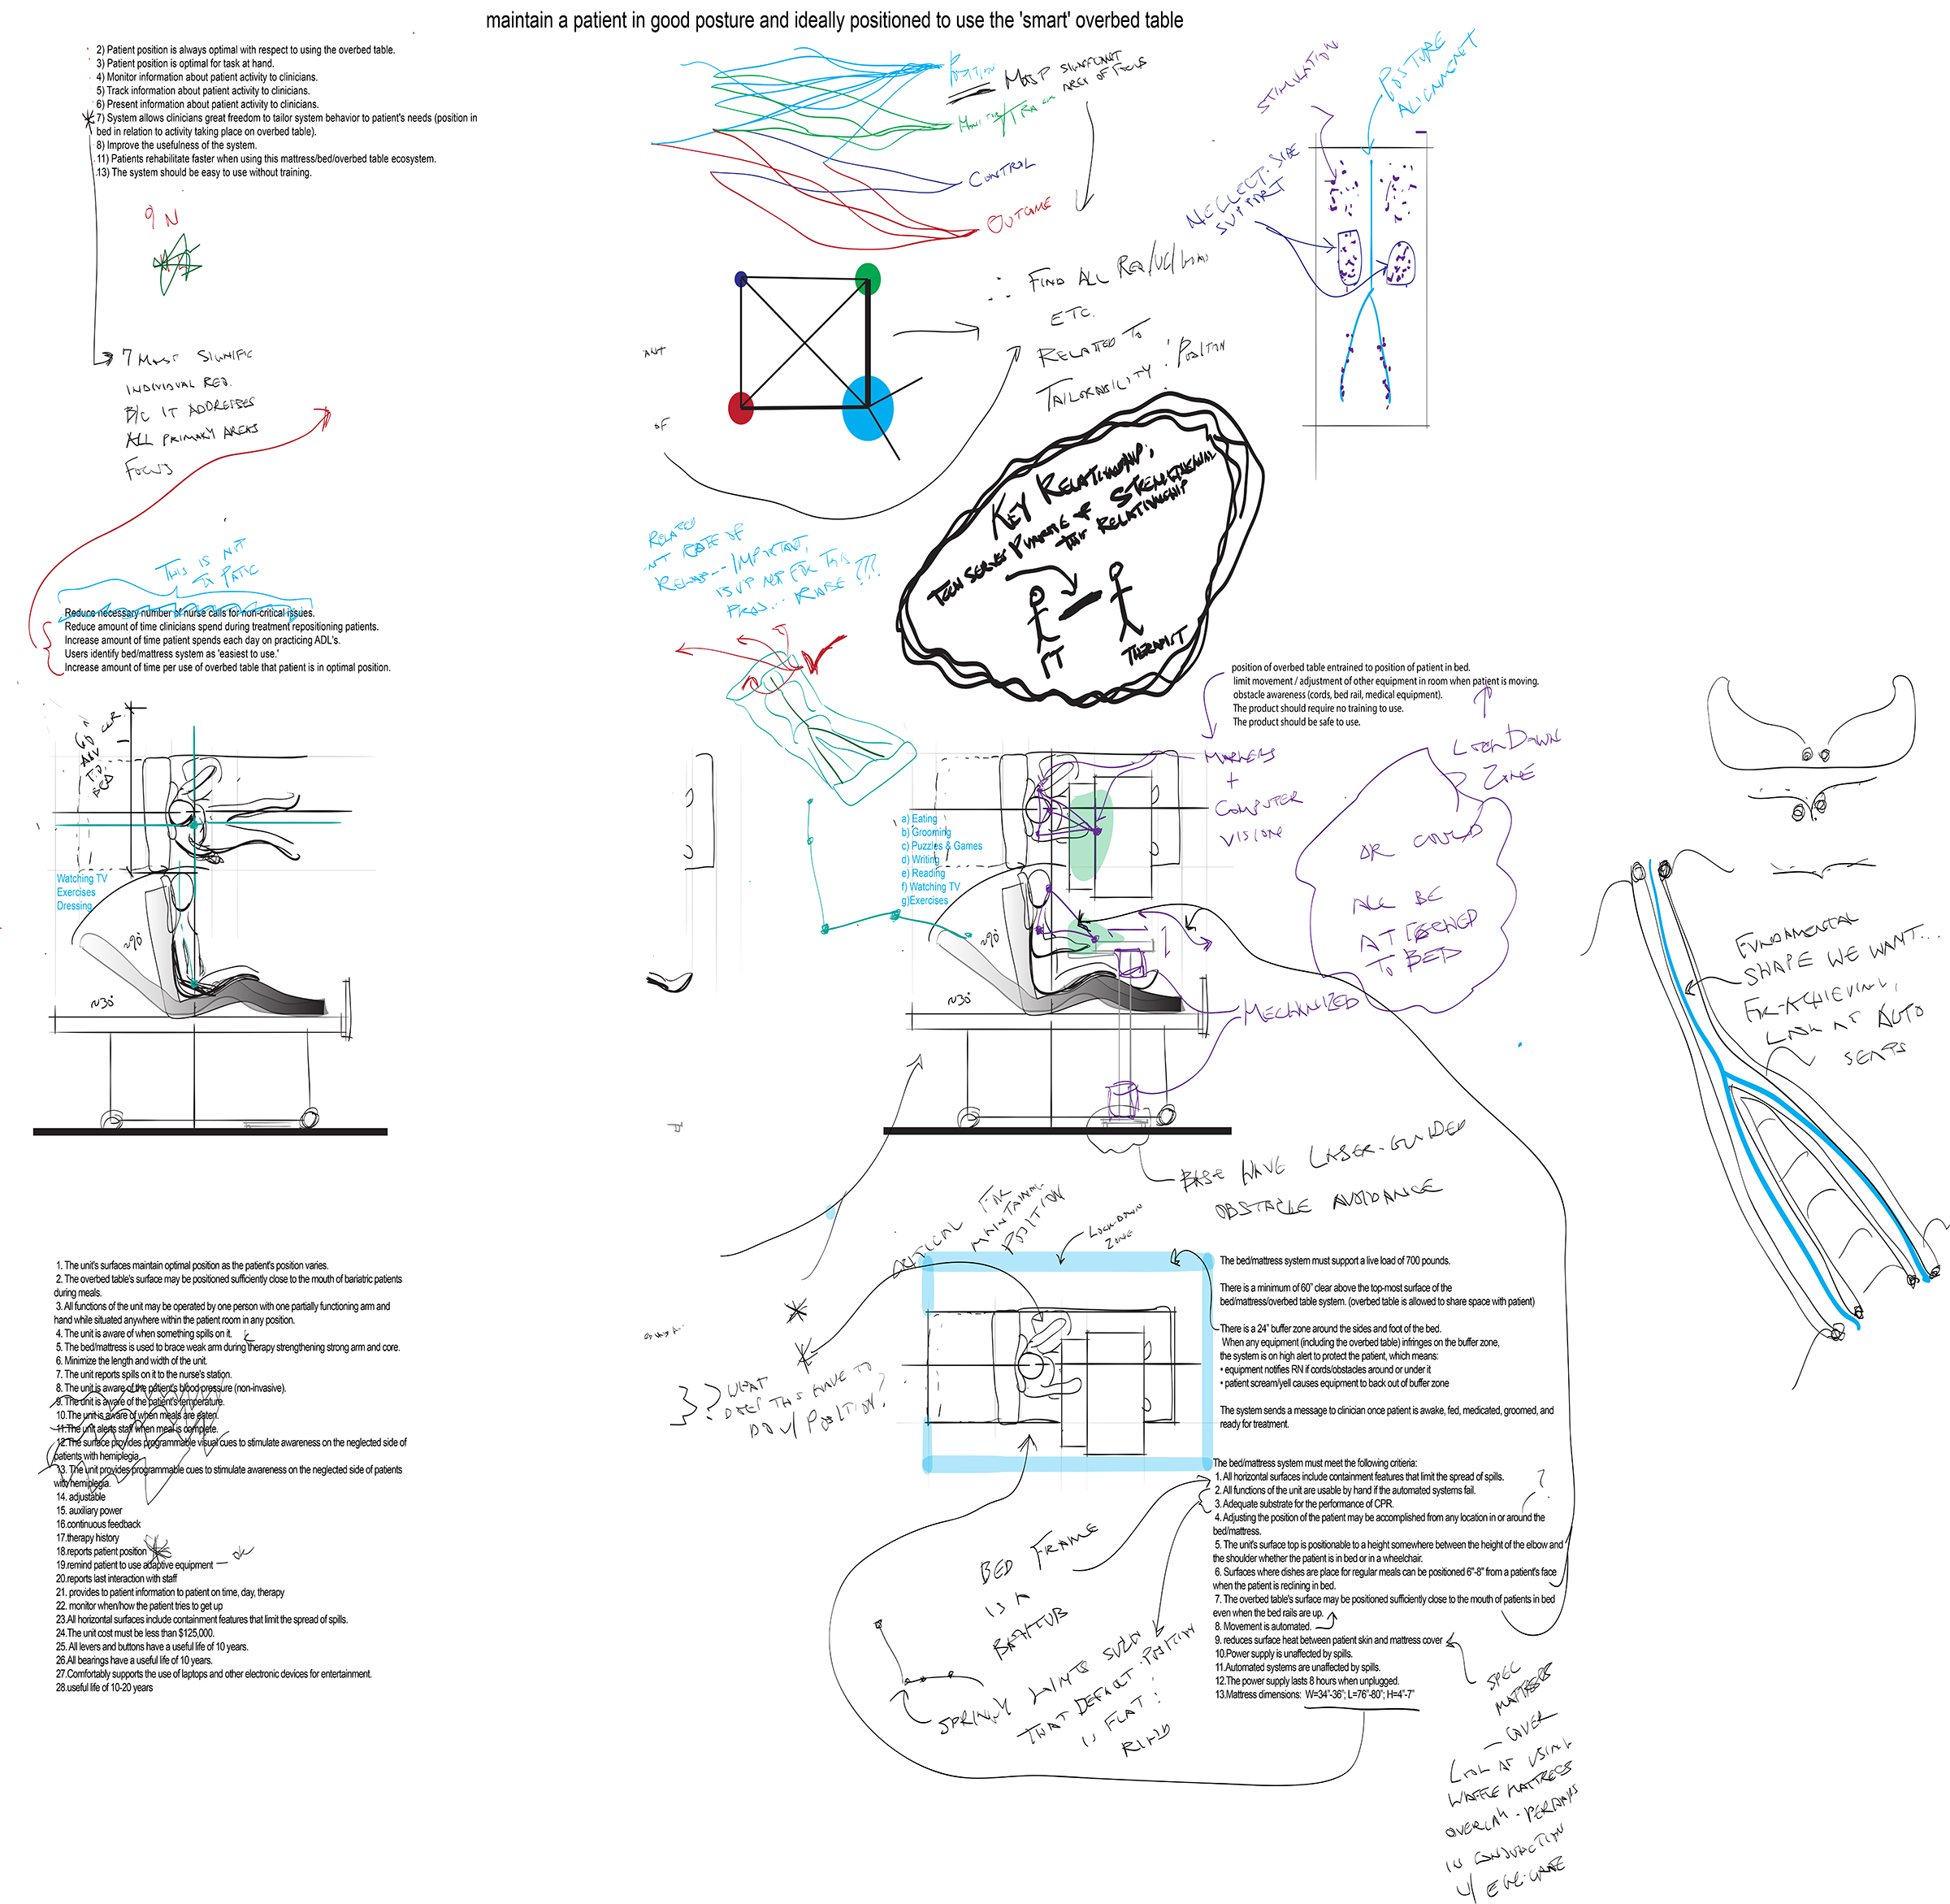 maintain a patient in good posture and ideally positioned to use the 'smart' overbed table
2) Patient position is always optimal with respect to using the overbed table.
3) Patient position is optimal for task at hand.
4) Monitor information about patient activity to clinicians.
5) Track information about patient activity to clinicians.
6) Present information about patient activity to clinicians.
7) System allows clinicians great freedom to tailor system behavior to patient's needs (position in
bed in relation to activity taking place on overbed table).
8) Improve the usefulness of the system.
11) Patients rehabilitate faster when using this mattress/bed/overbed table ecosystem.
13) The system should be easy to use without training.
9 N
7 MOST SIGNIFIC
INDIVIDUAL REQ.
B/C IT ADDRESSES
ALL PRIMARY AREAS
FOCUS
POSITION
MOST SIGNIFICANT
AREA OF FOCUS
MONITOR/TRACK
CONTROL
OUTCOME
STIMULATION
POSTURE
ALIGNMENT
NEGLECT-SIDE
SUPPORT
∴ FIND ALL REQ/UC/
ETC.
RELATED TO
TAILORABILITY : POSITION
KEY RELATIONSHIP:
TECH SERVES PURPOSE OF STRENGTHENING
THIS RELATIONSHIP
PT
THERAPIST
THIS IS NOT
TO PATIC
Reduce necessary number of nurse calls for non-critical issues.
Reduce amount of time clinicians spend during treatment repositioning patients.
Increase amount of time patient spends each day on practicing ADL's.
Users identify bed/mattress system as 'easiest to use.'
Increase amount of time per use of overbed table that patient is in optimal position.
RELATED
RATE OF
IMPORTANT,
IS UP NOT FOR THIS
PROD... ???
position of overbed table entrained to position of patient in bed.
limit movement / adjustment of other equipment in room when patient is moving.
obstacle awareness (cords, bed rail, medical equipment).
The product should require no training to use.
The product should be safe to use.
MARKERS
+
COMPUTER
VISION
LOCKDOWN
ZONE
OR COULD
ALL BE
ATTACHED
TO BED
60" CLR
BED
Watching TV
Exercises
Dressing
~90°
~30°
a) Eating
b) Grooming
c) Puzzles & Games
d) Writing
e) Reading
f) Watching TV
g)Exercises
~90°
~30°
MECHANIZED
FUNDAMENTAL
SHAPE WE WANT...
FOR ACHIEVING,
LOOK AT AUTO
SEATS
BASE HAVE LASER-GUIDED
OBSTACLE AVOIDANCE
CRITICAL FOR
MAINTAINING
POSITION
LOCKDOWN
ZONE
1. The unit's surfaces maintain optimal position as the patient's position varies.
2. The overbed table's surface may be positioned sufficiently close to the mouth of bariatric patients
during meals.
3. All functions of the unit may be operated by one person with one partially functioning arm and
hand while situated anywhere within the patient room in any position.
4. The unit is aware of when something spills on it.
5. The bed/mattress is used to brace weak arm during therapy strengthening strong arm and core.
6. Minimize the length and width of the unit.
7. The unit reports spills on it to the nurse's station.
8. The unit is aware of the patient's blood pressure (non-invasive).
9. The unit is aware of the patient's temperature.
10.The unit is aware of when meals are eaten.
11.The unit alerts staff when meal is complete.
12.The surface provides programmable visual cues to stimulate awareness on the neglected side of
patients with hemiplegia.
13. The unit provides programmable cues to stimulate awareness on the neglected side of patients
with hemiplegia.
14. adjustable
15. auxiliary power
16.continuous feedback
17.therapy history
18.reports patient position
19.remind patient to use adaptive equipment — OK
20.reports last interaction with staff
21. provides to patient information to patient on time, day, therapy
22. monitor when/how the patient tries to get up
23.All horizontal surfaces include containment features that limit the spread of spills.
24.The unit cost must be less than $125,000.
25. All levers and buttons have a useful life of 10 years.
26.All bearings have a useful life of 10 years.
27.Comfortably supports the use of laptops and other electronic devices for entertainment.
28.useful life of 10-20 years
}? WHAT
DOES THIS HAVE TO
DO W/ POSITION?
The bed/mattress system must support a live load of 700 pounds.
There is a minimum of 60" clear above the top-most surface of the
bed/mattress/overbed table system. (overbed table is allowed to share space with patient)
There is a 24" buffer zone around the sides and foot of the bed.
When any equipment (including the overbed table) infringes on the buffer zone,
the system is on high alert to protect the patient, which means:
• equipment notifies RN if cords/obstacles around or under it
• patient scream/yell causes equipment to back out of buffer zone
The system sends a message to clinician once patient is awake, fed, medicated, groomed, and
ready for treatment.
The bed/mattress system must meet the following criteria:
1. All horizontal surfaces include containment features that limit the spread of spills.
2. All functions of the unit are usable by hand if the automated systems fail.
3. Adequate substrate for the performance of CPR.
4. Adjusting the position of the patient may be accomplished from any location in or around the
bed/mattress.
5. The unit's surface top is positionable to a height somewhere between the height of the elbow and
the shoulder whether the patient is in bed or in a wheelchair.
6. Surfaces where dishes are place for regular meals can be positioned 6"-8" from a patient's face
when the patient is reclining in bed.
7. The overbed table's surface may be positioned sufficiently close to the mouth of patients in bed
even when the bed rails are up.
8. Movement is automated.
9. reduces surface heat between patient skin and mattress cover
10.Power supply is unaffected by spills.
11.Automated systems are unaffected by spills.
12.The power supply lasts 8 hours when unplugged.
13.Mattress dimensions: W=34"-36"; L=76"-80"; H=4"-7"
?
BED FRAME
IS A
BATHTUB
SPRINGY JOINTS SUCH
THAT DEFAULT POSITION
IS FLAT :
RIGID
SPEC
MATTRESS
— COVER
LOOK AT USING
WAFFLE MATTRESS
OVERLAY - PERHAPS
IN CONJUNCTION
W/ EGG-CRATE